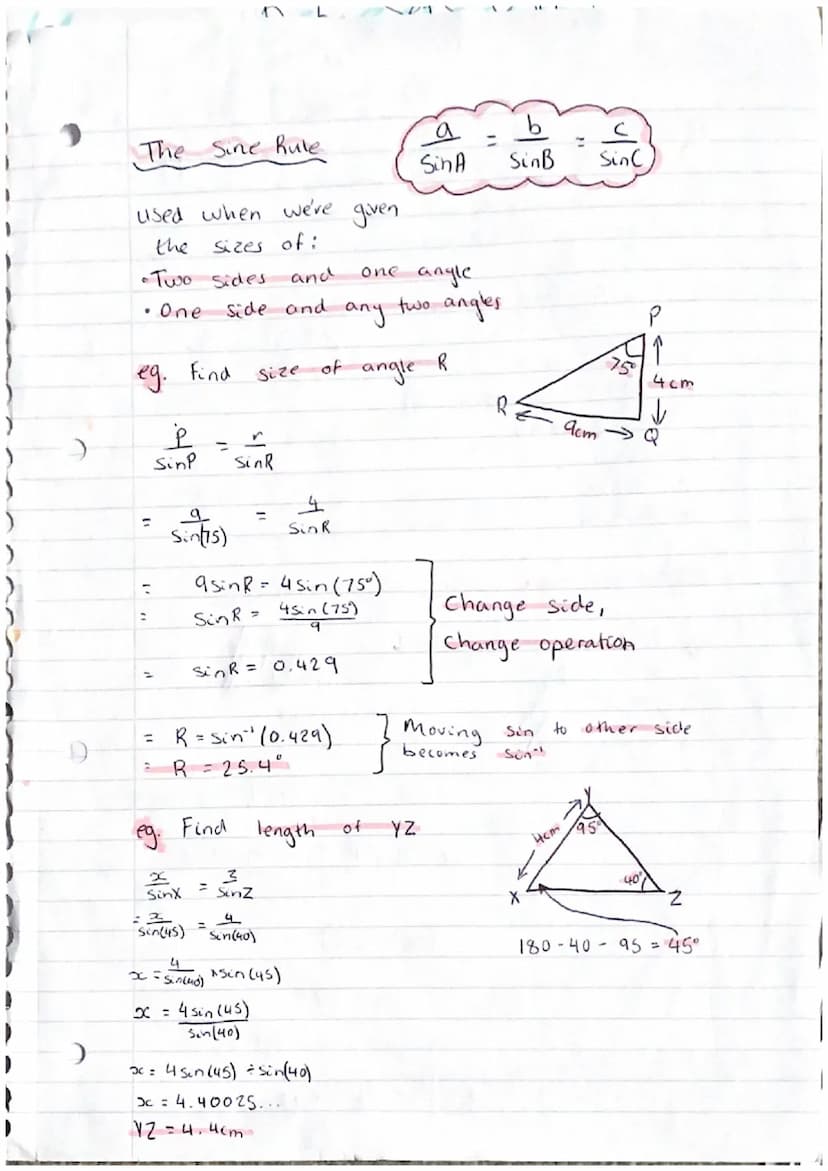 The Sine Rule
a/SinA = b/SinB = c/SinC
used when we've given
the sizes of:
• Two sides and one angle
• One side and any two angles
eg. Find size of angle R
P
75°
4cm
R
9cm
Q
p/SinP = r/SinR
= 9/Sin(75) = 4/SinR
= 9sinR = 4sin(75°)
= SinR = 4sin(75°)/9
= sinR = 0.429
Change side,
Change operation
= R = sin⁻¹(0.429)
= R = 25.4°
Moving sin to other side
becomes sin⁻¹
eg. Find length of YZ
Y
4cm
95°
40°
X
Z
180 - 40 - 95 = 45°
x/SinX = z/SinZ
= x/Sin(45) = 4/Sin(40)
x = 4/Sin(40) × Sin(45)
x = 4sin(45)/Sin(40)
x = 4sin(45) ÷ sin(40)
x = 4.40025...
YZ = 4.4cm